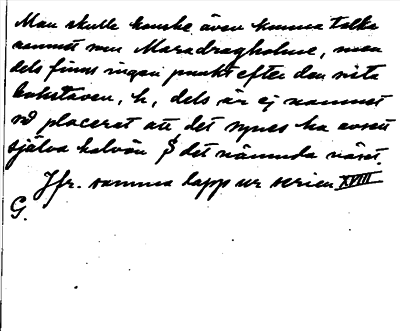 Man skulle kanske även kunna tolka
namnet som Maradragholme, men
dels finns ingen punkt efter den sista
bokstaven, h, dels är ej namnet
så placerat att det synes ha avsett
själva halvön $ det nämnda näset.
Jfr. samma lapp ur serien XVIII
G.